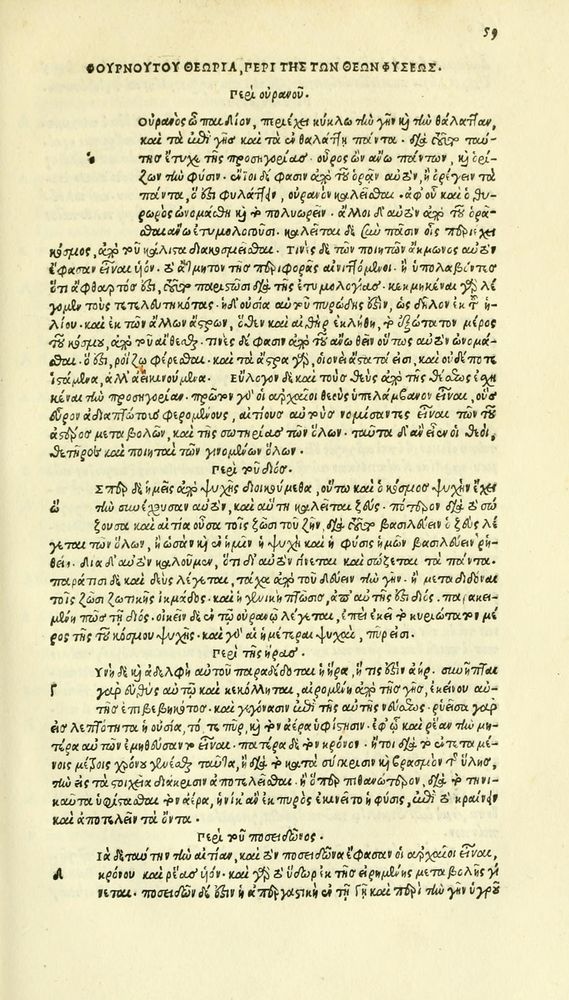 59
ΦΟΥΡΝΟΥΤΟΥ ΘΕΩΡΙΑ, ΠΕΡΙ ΤΗΣ ΤΩΝ ΘΕΩΝ ΦΥΣΕΩΣ.
Περὶ οὐρανοῦ.
Οὐρανὸς ὦ παιδίον, περιέχει κύκλω τὴν γῆν καὶ τὴν θάλατταν,
καὶ τὰ ἐπὶ γῆς καὶ τὰ ἐν θαλάττῃ πάντα. διὰ τοῦτο ταύ-
της ἔτυχε τῆς προσηγορίας. οὖρος ὢν ἄνω πάντων, καὶ ὁρί-
ζων τὴν φύσιν. ἔνιοι δέ φασιν ἀπὸ τοῦ ὁρᾶν αὐτὸν, ἢ ὠρεύειν τὰ
πάντα, ὅ ἐστι φυλάττειν, οὐρανὸν καλεῖσθαι. ἀφ' οὗ καὶ ὁ θυ-
ρωρὸς ὠνομάσθη καὶ τὸ πολυωρεῖν. ἄλλοι δ' αὐτὸν ἀπὸ τοῦ ὁρᾶ-
σθαι ἄνω ἐτυμολογοῦσι. καλεῖται δὲ σὺν πᾶσιν οἷς περιέχει
κόσμος, ἀπὸ τοῦ κάλλιστα διακοσμεῖσθαι. Τινὲς δὲ τῶν ποιητῶν ἄκμωνος αὐτὸν
ἔφασαν εἶναι ὑιόν. τὸ ἄκμητον τῆς περιφορᾶς αἰνιττόμενοι. ἢ ὑπολαβόντες
ὅτι ἄφθαρτός ἐστι, τοῦτο παριστῶσι διὰ τῆς ἐτυμολογίας. κεκμηκέναι γὰρ λέ
γομεν τοὺς τετελευτηκότας. ἡ δ' οὐσία αὐτοῦ πυρώδης ἐστὶν, ὡς δῆλον ἐκ τοῦ ἡ-
λίου. καὶ ἐκ τῶν ἄλλων ἄστρων, ὅθεν καὶ αἰθὴρ ἐκλήθη, τὸ ἐξώτατον μέρος
τοῦ κόσμου, ἀπὸ τοῦ αἴθεσθαι. τινὲς δέ φασιν ἀπὸ τοῦ ἄνω θεῖν οὕτως αὐτὸν ὠνομά-
σθαι. ὅ ἐστι, ῥοίζῳ φέρεσθαι. καὶ τὰ ἄστρα γὰρ, οἱονεὶ ἄστατά εἰσι, καὶ οὐδέποτε
ἱστάμενα, ἀλλ' ἀεὶ κινούμενα. Εὔλογον δὲ καὶ τοὺς θεοὺς ἀπὸ τῆς θέσεως ἐσχη
κέναι τὴν προσηγορίαν. πρῶτον γὰρ οἱ ἀρχαῖοι θεοὺς ὑπελάμβανον εἶναι, οὓς
ἑώρων ἀδιαλείπτως φερομένους, αἰτίους αὐτοὺς νομίσαντες εἶναι τῶν τοῦ
ἀέρος μεταβολῶν, καὶ τῆς σωτηρίας τῶν ὅλων. ταῦτα δ' ἂν εἶεν οἱ θεοὶ,
θετῆρες καὶ ποιηταὶ τῶν γινομένων ὅλων.
Περὶ τοῦ διός.
Σπερ δὲ ἡμεῖς ἀπὸ ψυχῆς διοικούμεθα, οὕτω καὶ ὁ κόσμος ψυχὴν ἔχει
ὦ τὴν συνέχουσαν αὐτὸν, καὶ αὕτη καλεῖται ζεύς. πρότερον διὰ τὸ σώ
ζουσα καὶ αἰτία οὖσα τοῖς ζῶσι τοῦ ζῆν, διὰ τοῦτο βασιλεύειν ὁ ζεὺς λέ
γεται τῶν ὅλων, ἢ ὡσὰν καὶ ἐν ἡμῖν ἡ ψυχὴ καὶ ἡ φύσις ἡμῶν βασιλεύειν ῥη-
θείη. δία δ' αὐτὸν καλοῦμεν, ὅτι δι' αὐτὸν γίνεται καὶ σώζεται τὰ πάντα.
παρά τισι δὲ καὶ δεὺς λέγεται, τάχα ἀπὸ τοῦ δεύειν τὴν γῆν. ἢ μεταδιδόναι
τοῖς ζῶσι ζωτικῆς ἰκμάδος. καὶ ἡ γενικὴ πτῶσις, ἀπ' αὐτῆς ἐστὶ διός. παρακει-
μένη πως τῇ διός. οἰκεῖν δὲ ἐν τῷ οὐρανῷ λέγεται, ἐπεὶ ἐκεῖ τὸ κυριώτατον μέ
ρος τῆς τοῦ κόσμου ψυχῆς. καὶ γὰρ αἱ ἡμέτεραι ψυχαὶ, πῦρ εἰσι.
Περὶ τῆς ἥρας.
Υνὴ δὲ καὶ ἀδελφὴ αὐτοῦ παραδίδοται ἡ ἥρα, ἥ τις ἐστὶν ἀήρ. συνῆπται
Γ γὰρ εὐθὺς αὐτῷ καὶ κεκόλληται, αἰρομένη ἀπὸ τῆς γῆς, ἐκείνου αὐ-
τῆς ἐπιβεβηκότος. καὶ γεγόνασιν ἐπὶ τῆς αὐτῆς νεύσεως. ῥυεῖσα γὰρ
εἰς λεπτότητα ἡ οὐσία, τό τε πῦρ, καὶ τὸν ἀέρα ὑφίστησιν. ἐφ' ᾧ καὶ ῥέαν τὴν μη-
τέρα αὐτῶν ἐμυθεύσαντο εἶναι. πατέρα δὲ τὸν κρόνον. ἤτοι διὰ τὸ ἐν τεταμέ-
νοις μέτροις χρόνου γενέσθαι ταῦτα, ἢ διὰ τὸ κατὰ σύγκρισιν καὶ βρασμὸν τῆς ὕλης,
τὴν εἰς τὰ στοιχεῖα διάκρισιν ἀποτελεῖσθαι. ἢ ὅπερ πιθανώτερον, διὰ τὸ τηνι-
καῦτα ὑφίστασθαι τὸν ἀέρα, ἡνίκ' ἂν ἐκ πυρὸς ἐκινεῖτο ἡ φύσις, ἐπὶ τὸ κραίνειν
καὶ ἀποτελεῖν τὰ ὄντα.
Περὶ τοῦ ποσειδῶνος.
Ιὰ δὲ ταύτην τὴν αἰτίαν, καὶ τὸν ποσειδῶνα ἔφασαν οἱ ἀρχαῖοι εἶναι,
Δ κρόνου καὶ ῥέας ὑιόν. καὶ γὰρ τὸ ὕδωρ ἐκ τῆς εἰρημένης μεταβολῆς γί
νεται. ποσειδῶν δέ ἐστιν ἡ ἀπεργαστικὴ ἐν τῇ γῇ καὶ περὶ τὴν γῆν ὑγροῦ